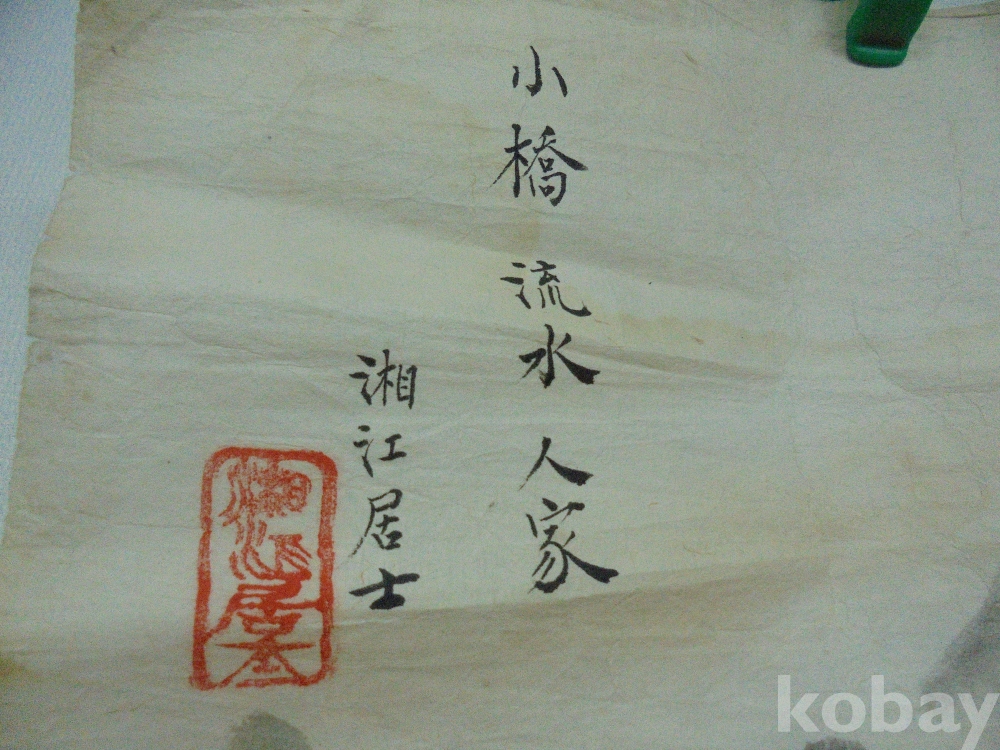 小橋 流水 人家
湘江居士
湘江居士
kobay